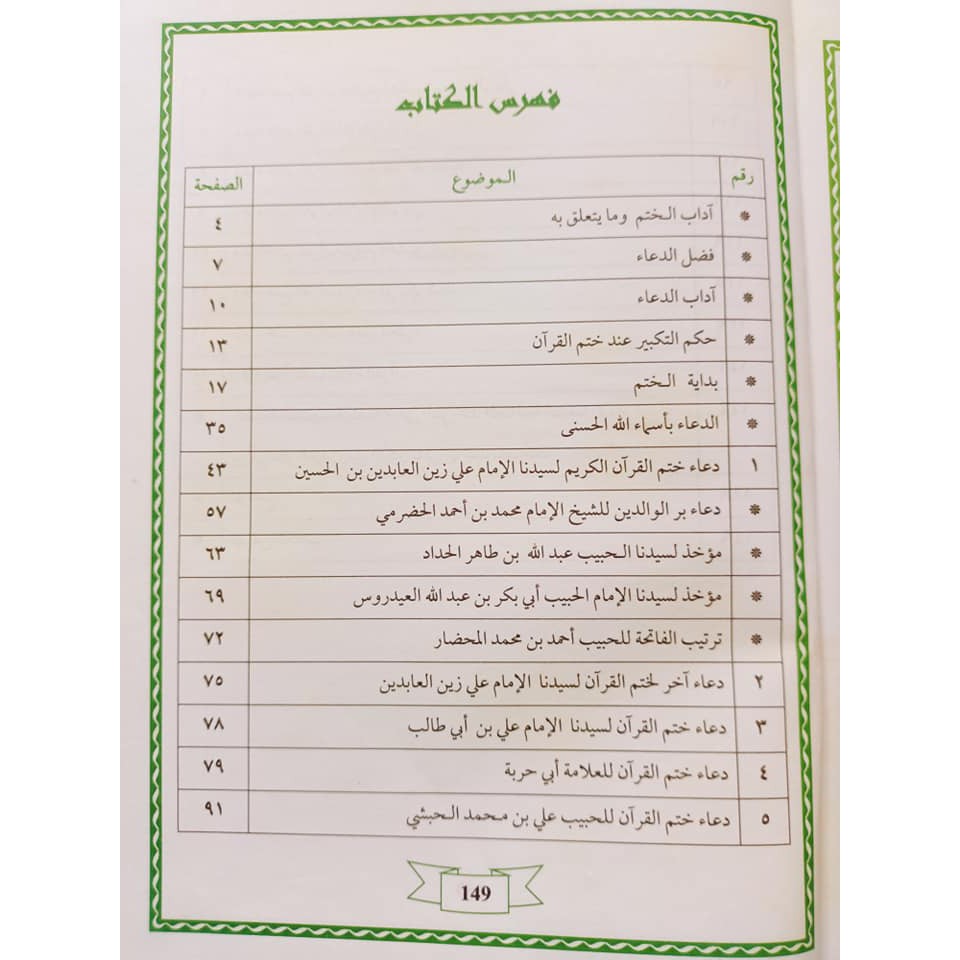 فهرس الكتاب
رقم الموضوع الصفحة
* آداب الختم وما يتعلق به ٤
* فضل الدعاء ٧
* آداب الدعاء ١٠
* حكم التكبير عند ختم القرآن ١٣
* بداية الختم ١٧
* الدعاء بأسماء الله الحسنى ٣٥
١ دعاء ختم القرآن الكريم لسيدنا الإمام علي زين العابدين بن الحسين ٤٣
* دعاء بر الوالدين للشيخ الإمام محمد بن أحمد الحضرمي ٥٧
* مؤخذ لسيدنا الحبيب عبد الله بن طاهر الحداد ٦٣
* مؤخذ لسيدنا الإمام الحبيب أبي بكر بن عبد الله العيدروس ٦٩
* ترتيب الفاتحة للحبيب أحمد بن محمد المحضار ٧٢
٢ دعاء آخر لختم القرآن لسيدنا الإمام علي زين العابدين ٧٥
٣ دعاء ختم القرآن لسيدنا الإمام علي بن أبي طالب ٧٨
٤ دعاء ختم القرآن للعلامة أبي حربة ٧٩
٥ دعاء ختم القرآن للحبيب علي بن محمد الحبشي ٩١
149